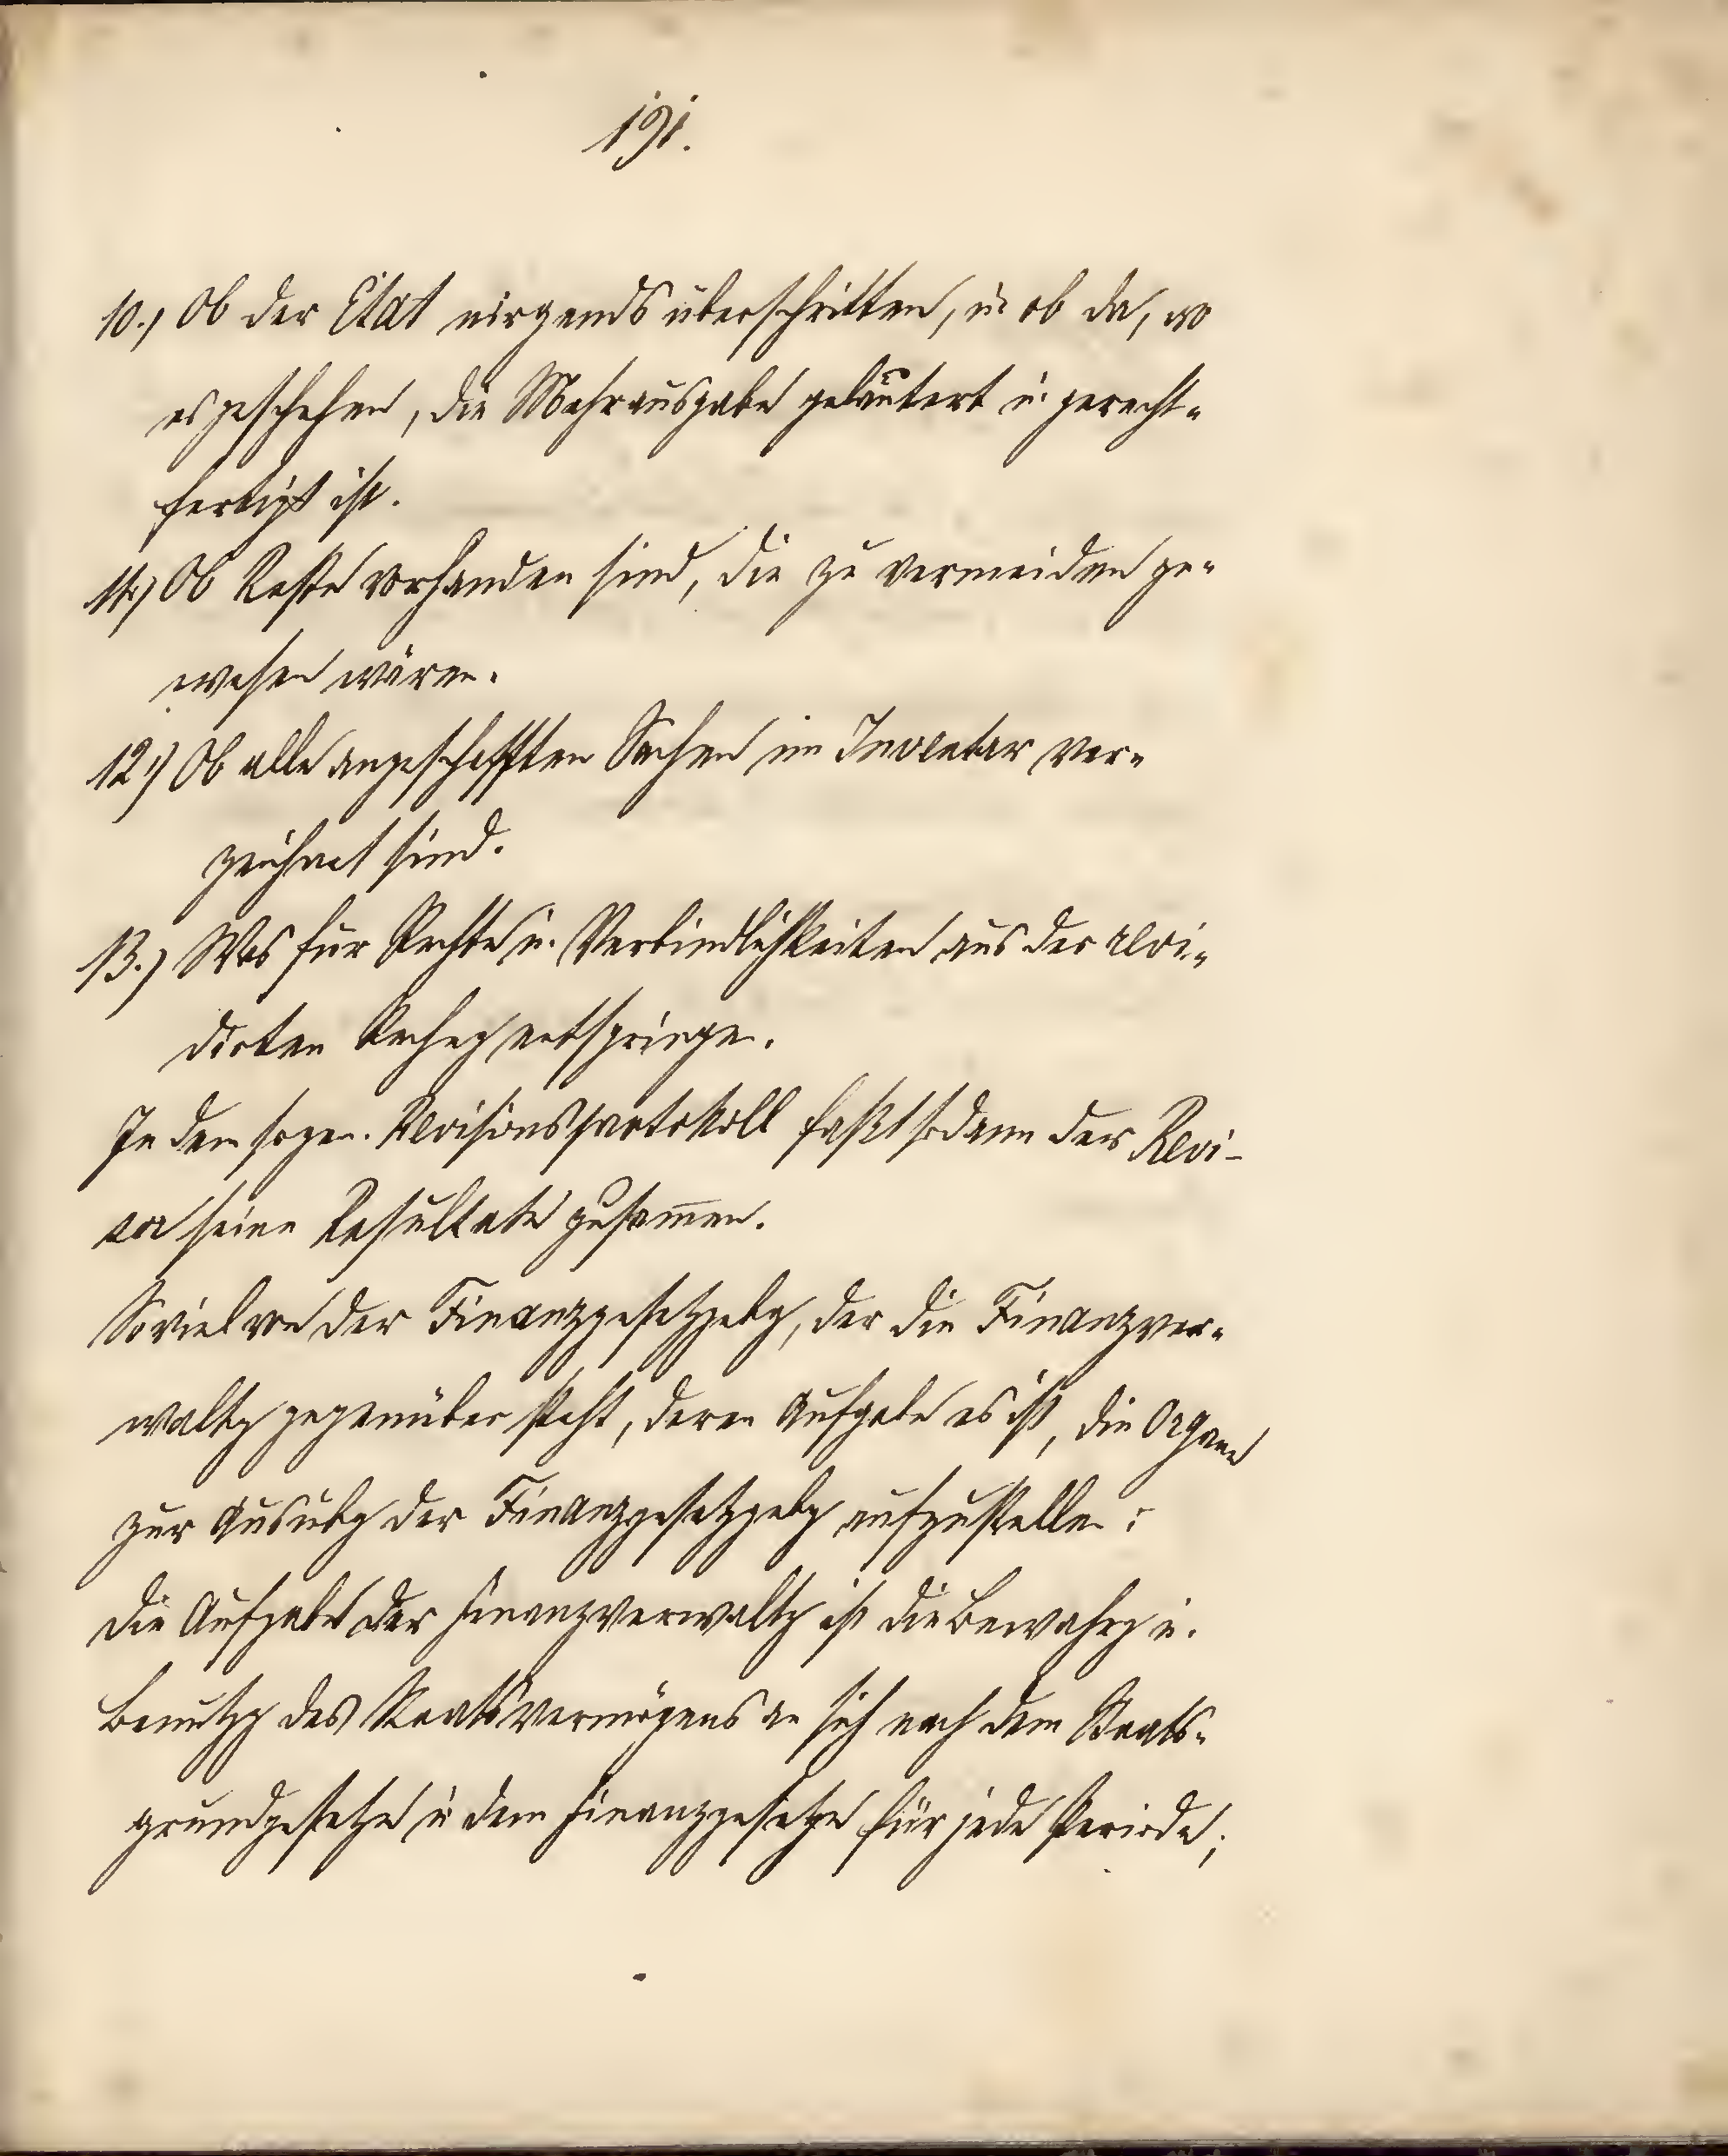 191.
10.) Ob der Etat nirgends überschritten, u. ob da, wo
es geschehen, die Mehrausgabe geläutert u. gerecht-
fertigt ist.
11.) Ob Reste vorhanden sind, die zu vermeiden ge-
wesen wären.
12.) Ob alle angeschafften Sachen im Inventar ver-
zeichnet sind.
13.) Was für Rechte u. Verbindlichkeiten aus der revi-
dirten Rechng entspringen.
In dem sogen. Revisionsprotokoll faßt sodann der Revi-
sor seine Resultate zusammen.
Soviel von der Finanzgesetzgebg, der die Finanzver-
waltg gegenüber steht, deren Aufgabe es ist, die Organe
zur Ausübg der Finanzgesetzgebg aufzustellen:
Die Aufgabe der Finanzverwaltg ist die Bewahrg u.
Benutzg des Staatsvermögens an sich nach dem Staats-
grundgesetze u dem Finanzgesetze für jede Periode;